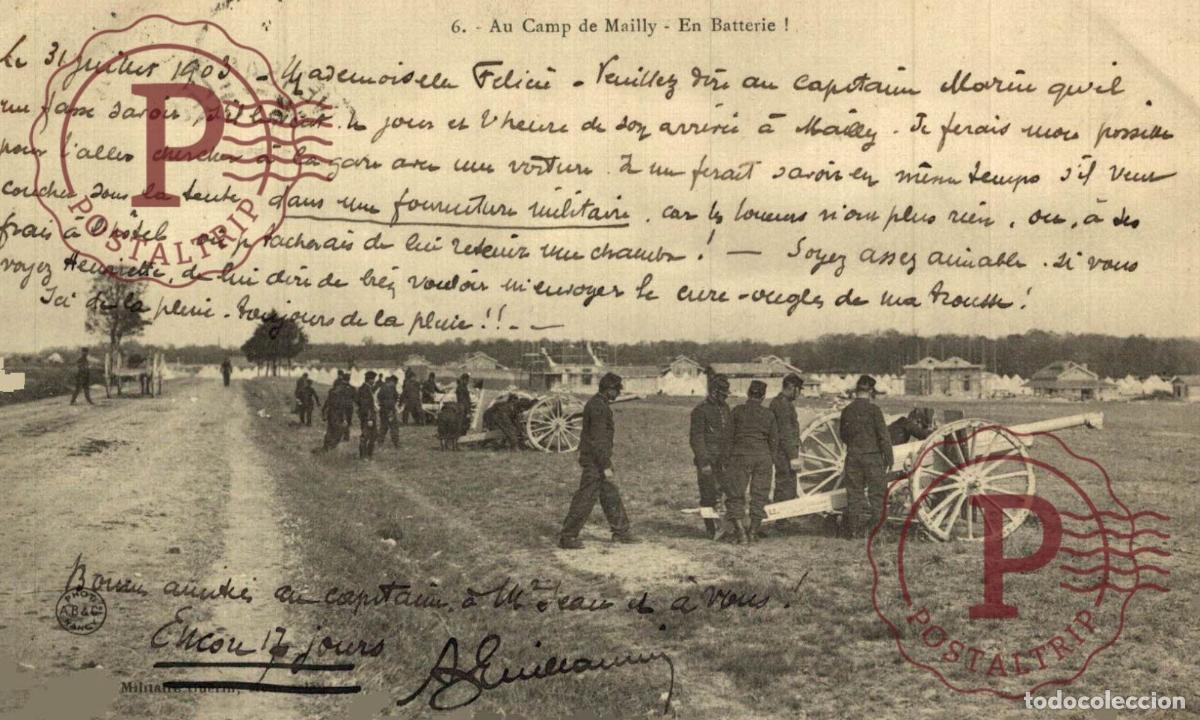 6. - Au Camp de Mailly - En Batterie !
Le 31 Juillet 1903 - Mademoiselle Felicie - Veuillez dire au capitaine Morin qu'il
me fasse savoir, s'il le jour et l'heure de son arrivée à Mailly. Je ferais mon possible
pour l'aller chercher à la gare avec une voiture. Il me ferait savoir en même temps s'il veut
coucher sous la tente dans une fourniture militaire, car les loueurs n'ont plus rien, ou, à ses
frais à l'hôtel où je tâcherais de lui retenir une chambre ! - Soyez assez aimable, si vous
voyez Henriette, de lui dire de bien vouloir m'envoyer le cure-ongles de ma trousse !
Ici de la pluie - toujours de la pluie !! - -
Bonne amitiés au capitaine, à Mr Jean et a vous !
Encore 17 jours
A Guillaumin
PHOT
A.B.&C
NANCY
Militaire Guérin,
P
POSTALTRIP
P
POSTALTRIP
todocoleccion